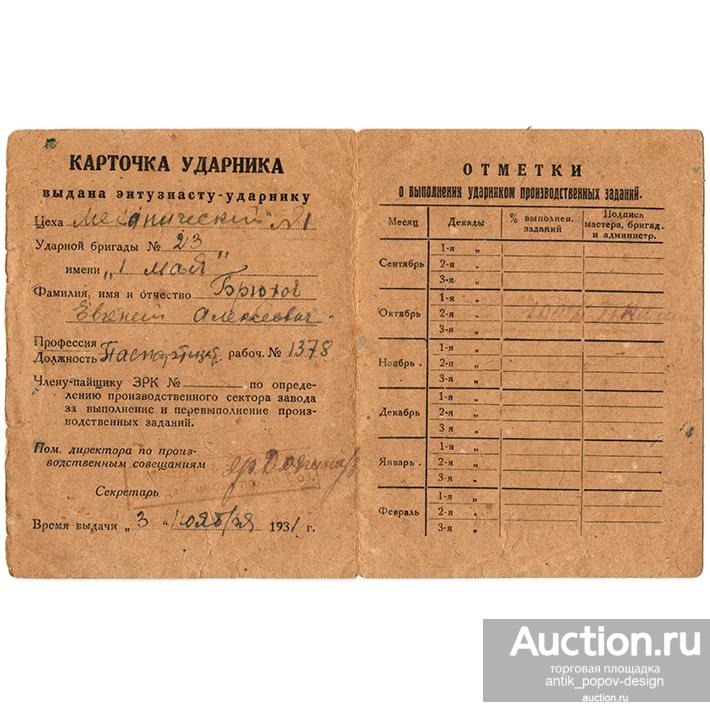 КАРТОЧКА УДАРНИКА
выдана энтузиасту-ударнику
Цеха Механический №1
Ударной бригады № 23
имени „1 Мая"
Фамилия, имя и отчество Брюхов
Евгений Алексеевич
Профессия
Должность Паспортизат рабоч. № 1378
Члену-пайщику ЗРК № по опреде-
лению производственного сектора завода
за выполнение и перевыполнение произ-
водственных заданий.
Пом. директора по произ-
водственным совещаниям
Секретарь
Время выдачи „3" ноября 1931 г.
ОТМЕТКИ
о выполнении ударником производственных заданий.
Месяц Декады % выполнен. заданий Подпись мастера, бригад. и администр.
Сентябрь 1-я „
2-я „
3-я „
Октябрь 1-я „
2-я „
3-я „
Ноябрь 1-я „
2-я „
3-я „
Декабрь 1-я „
2-я „
3 я „
Январь 1-я „
2-я „
3-я „
Февраль 1-я „
2-я „
3-я „
Auction.ru
торговая площадка
antik_popov-design
auction.ru